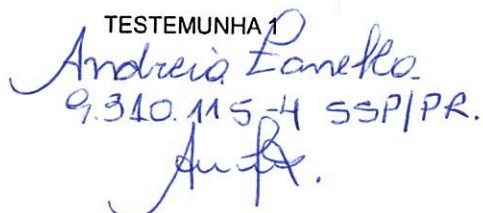 TESTEMUNHA 1
Andreia Zanella
9.310.115-4 SSP/PR.